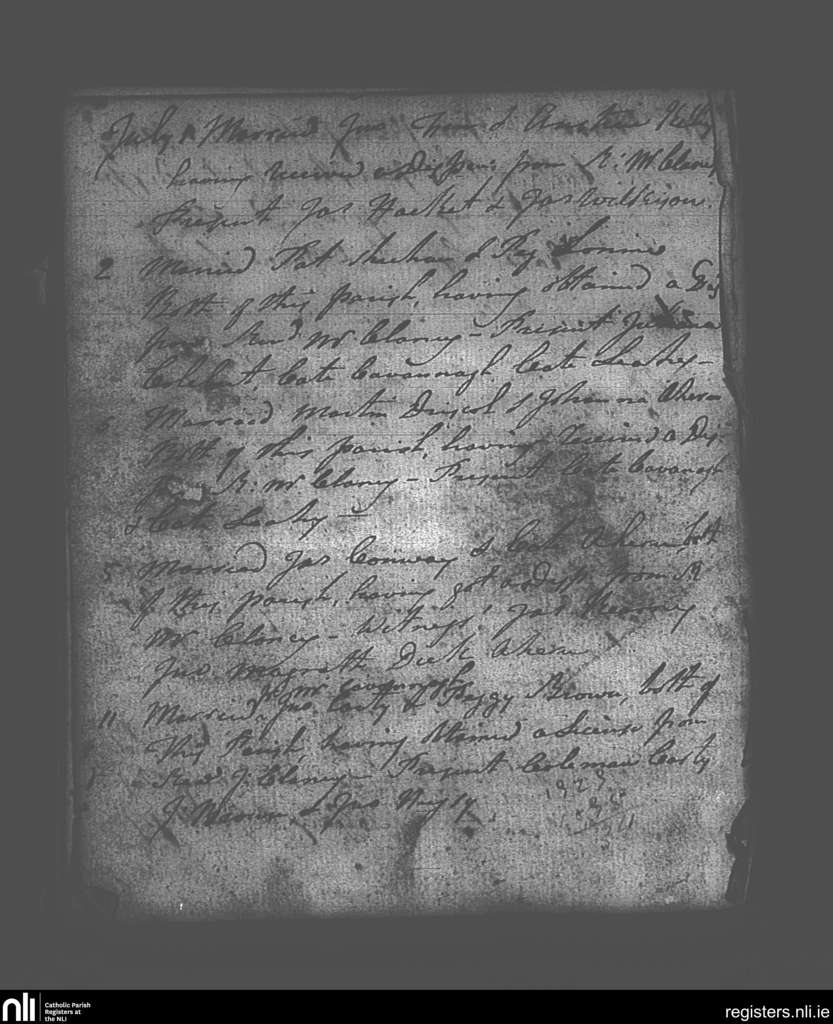 July 1 Married Jno & Anastia Kelly
having received a Dispen: from R: Mr Clancy
Present Jas Hacket & Jas Wilkison.
2 Married Pat Sheehan & Peg
Both of this parish, having obtained a Dis
from Revd Mr Clancy – Present Juliana
Cate Cavanagh Cate Leahy –
Married Martin Driscol & Johanna Ahern
Both of this parish, having received a Dis.
from R: Mr Clancy – Present Cate Cavanagh
& Cate Leahy –
5 Married Jas Conway & Cate Ahern, both
of this parish, having got a disp. from R
Mr Clancy – Witness, Jas Kearney
Jno Magrath Dick Ahern
by Mr Cavanagh
11 Married Jno Carty & Peggy Brown, both of
This Parish, having obtained a License from
Revd J: Clancy – Present Coleman Carty
J: & Jno
1929
18
11
nli
Catholic Parish
Registers at
the NLI
registers.nli.ie